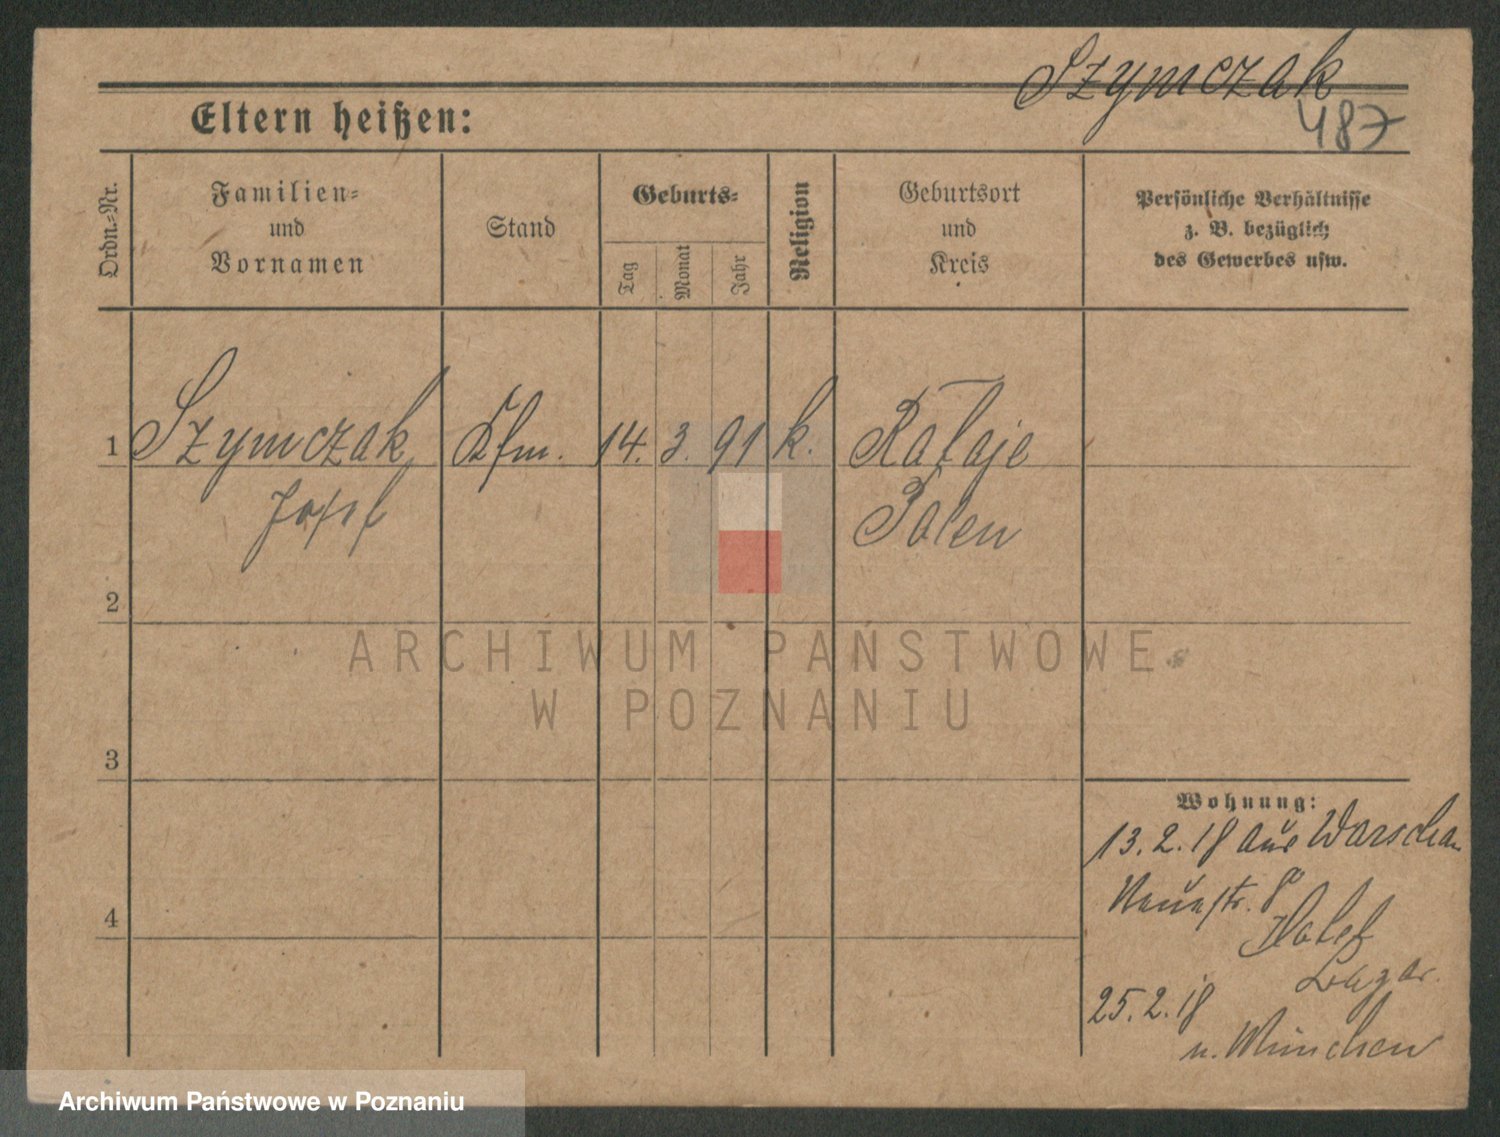 Szymczak
487
Eltern heißen:
Ordn.=Nr.
Familien=
und
Vornamen
Stand
Geburts=
Tag
Monat
Jahr
Religion
Geburtsort
und
Kreis
Persönliche Verhältnisse
z. B. bezüglich
des Gewerbes usw.
1 Szymczak Kfm. 14. 3. 91 k. Rataje
Josef Polen
2
3
4
Wohnung:
13.2.18 aus Warschau
Neuestr. 8
Hotel
25.2.18
n. München
ARCHIWUM PAŃSTWOWE
W POZNANIU
Archiwum Państwowe w Poznaniu